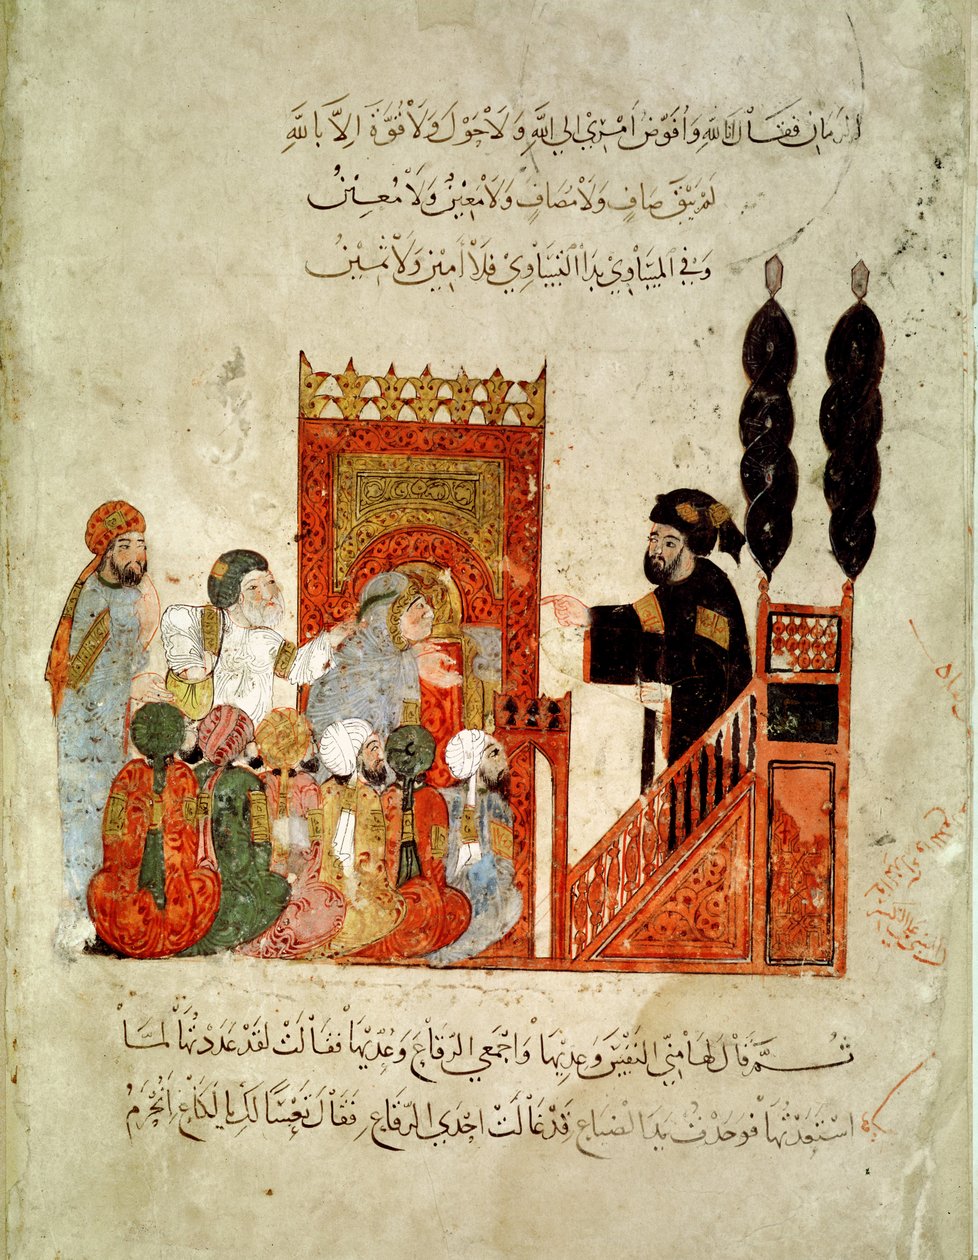 الزمان فقال انا لله وَاُفَوّضُ اَمْرِيْ الي اللهِ وَلَاْ حَوْلَ وَلَاْ قُوَّةَ اِلاَّ بِاللهِ
لَمْ يَبْقَ صَافٍ وَلَاْ مُصَافٍ وَلَاْ مَعِيْنٌ وَلَاْ مُعِيْنُ
وَفِي المَسَاْوِيْ بَدَاْ التَسَاْوِيْ فَلَاْ اَمِيْن وَلَاْ ثَمِيْنُ
ثُمَّ قَالَ لَهَا مَنّي النَفْسَ وَعِدِيْهَاْ وَاجْمَعِي الرّقَاْعَ وَعُدّيْهَاْ فقَاْلَتْ لَقَدْ عَدَدْتُهَاْ لَمَّاْ
اسْتَعَدْتُهَاْ فَوَجَدْتُ يَدَ الضَيَاعِ قَدْ غَاْلَتْ اِحْدَي الرّقَاْعِ فَقَاْلَ تَعْسًا لَكِ يا لَكَاْعِ اَنُحْرَمُ